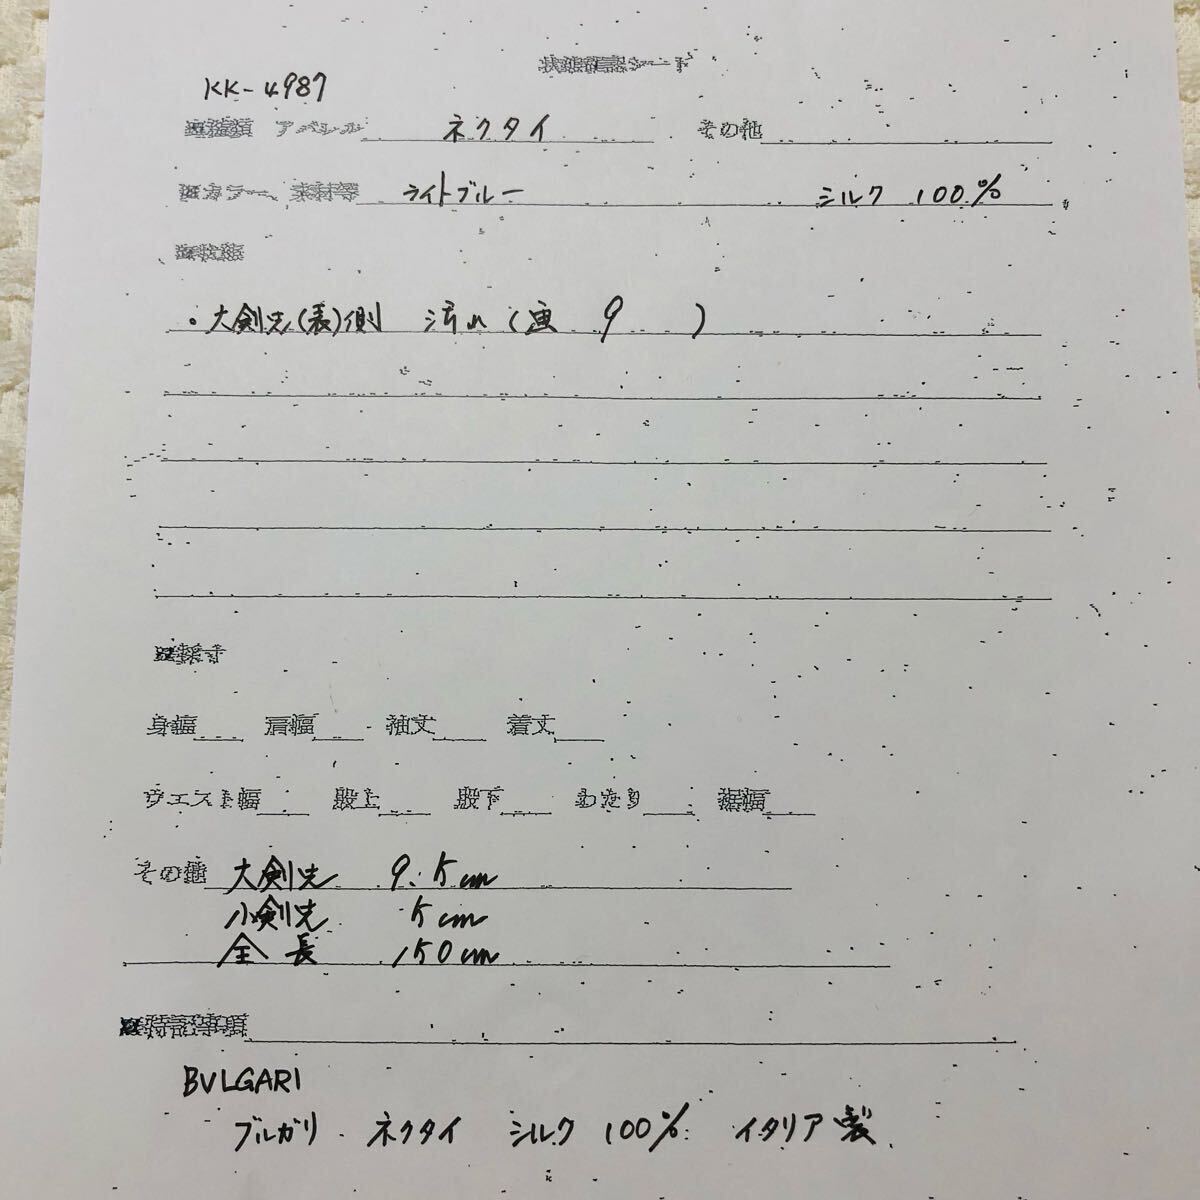 状態確認シート
KK-4987
アパレル ネクタイ その他
カラー、素材等 ライトブルー シルク 100%
・大剣先(表)側 汚れ(画 9 )
身幅 肩幅 袖丈 着丈
ウエスト幅 股上 股下 わたり 裾幅
その他 大剣先 9.5cm
小剣先 5cm
全長 150cm
特記事項
BVLGARI
ブルガリ ネクタイ シルク 100% イタリア製